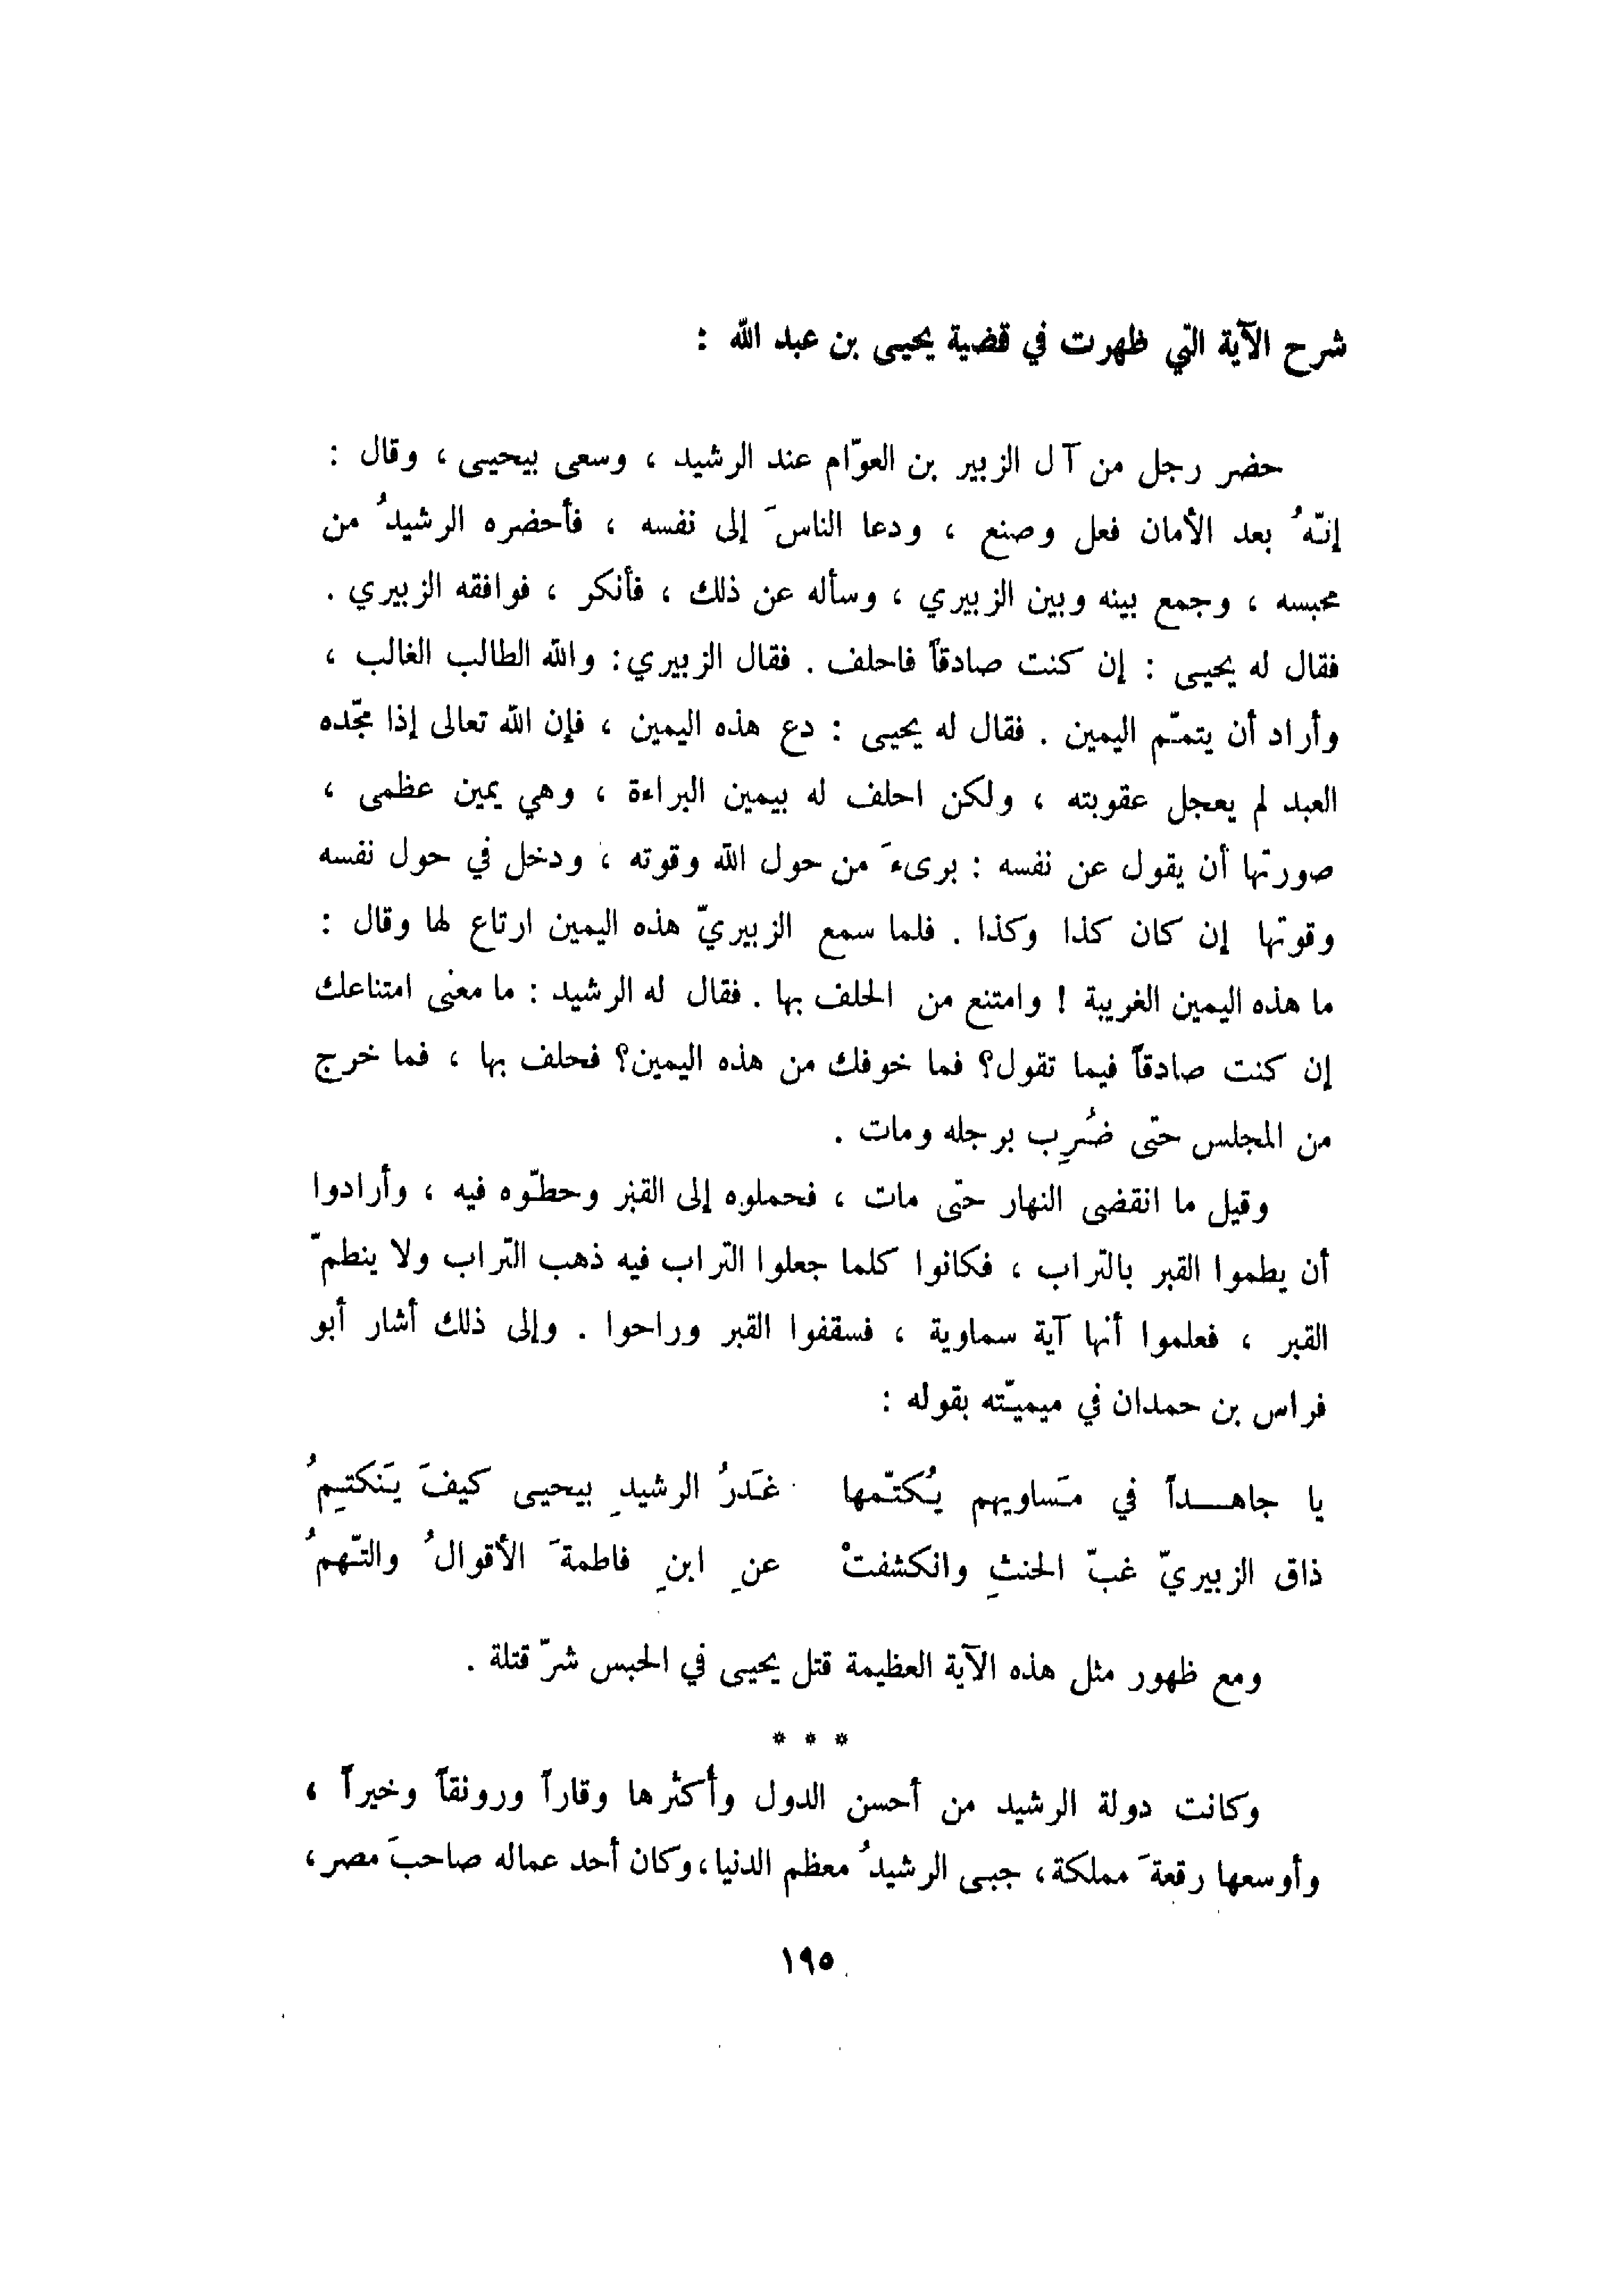 شرح الآية التي ظهرت في قضية يحيى بن عبد الله :
حضر رجل من آل الزبير بن العوّام عند الرشيد ، وسعى بيحيى ، وقال :
إنّهُ بعد الأمان فعل وصنع ، ودعا الناسَ إلى نفسه ، فأحضره الرشيدُ من
محبسه ، وجمع بينه وبين الزبيري ، وسأله عن ذلك ، فأنكر ، فوافقه الزبيري .
فقال له يحيى : إن كنت صادقاً فاحلف . فقال الزبيري: والله الطالب الغالب ،
وأراد أن يتمّم اليمين . فقال له يحيى : دع هذه اليمين ، فإن الله تعالى إذا مجّده
العبد لم يعجل عقوبته ، ولكن احلف له بيمين البراءة ، وهي يمين عظمى ،
صورتها أن يقول عن نفسه : برىءَ من حول الله وقوته ، ودخل في حول نفسه
وقوتها إن كان كذا وكذا . فلما سمع الزبيريّ هذه اليمين ارتاع لها وقال :
ما هذه اليمين الغريبة ! وامتنع من الحلف بها . فقال له الرشيد : ما معنى امتناعك
إن كنت صادقاً فيما تقول؟ فما خوفك من هذه اليمين؟ فحلف بها ، فما خرج
من المجلس حتى ضُرِب برجله ومات .
وقيل ما انقضى النهار حتى مات ، فحملوه إلى القبر وحطّوه فيه ، وأرادوا
أن يطموا القبر بالتراب ، فكانوا كلما جعلوا التراب فيه ذهب التراب ولا ينطمّ
القبر ، فعلموا أنها آية سماوية ، فسقفوا القبر وراحوا . وإلى ذلك أشار أبو
فراس بن حمدان في ميميّته بقوله :
يا جاهـداً في مَساويهم يُكتّمها غَدرُ الرشيدِ بيحيى كيفَ يَنكتِمُ
ذاق الزبيريّ غبّ الحنثِ وانكشفتْ عنِ ابنِ فاطمةَ الأقوالُ والتّهمُ
ومع ظهور مثل هذه الآية العظيمة قتل يحيى في الحبس شرّ قتلة .
* * *
وكانت دولة الرشيد من أحسن الدول وأكثرها وقاراً ورونقاً وخيراً ،
وأوسعها رقعةَ مملكة ، جبى الرشيدُ معظم الدنيا ، وكان أحد عماله صاحبَ مصر ،
١٩٥